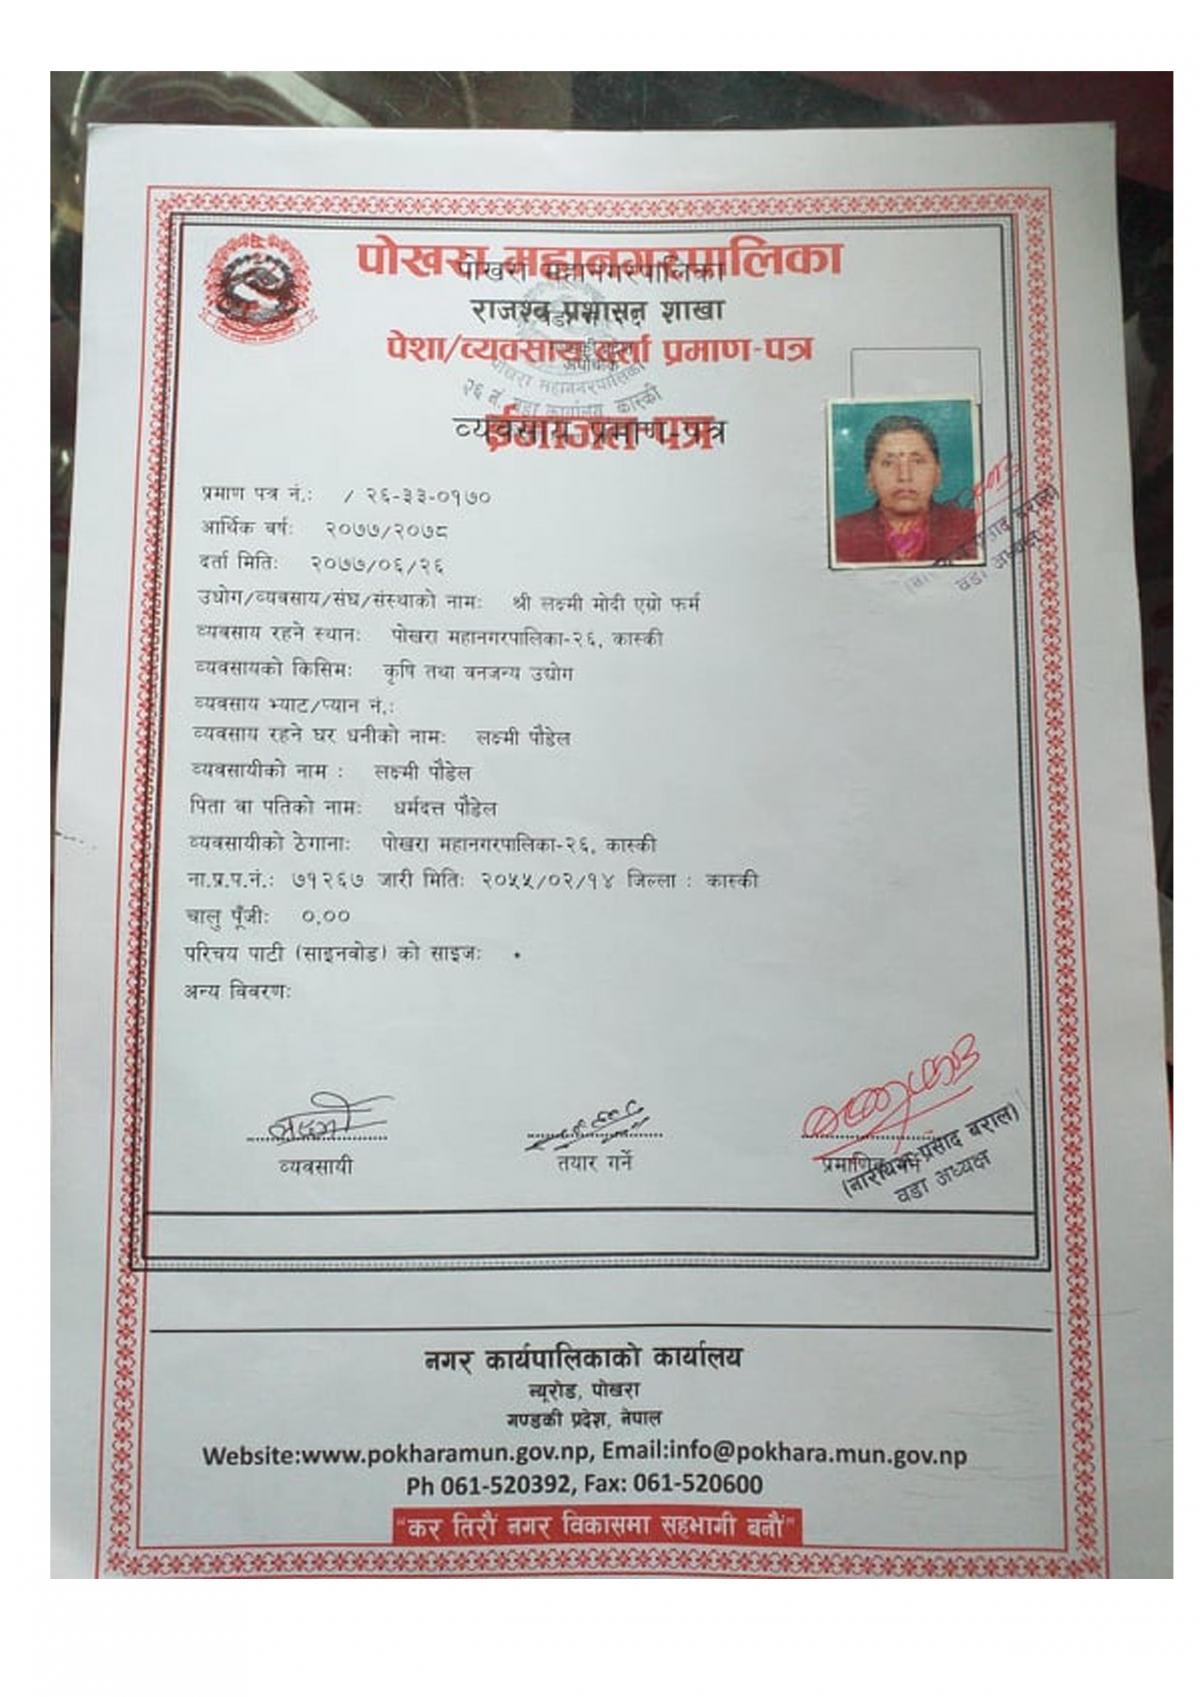 पोखरा महानगरपालिका
पोखरा महानगरपालिका
राजश्व प्रशासन शाखा
पेशा/व्यवसाय दर्ता प्रमाण-पत्र
पोखरा महानगरपालिका
२६ नं. वडा कार्यालय, कास्की
ईजाजत पत्र
व्यवसाय प्रमाण-पत्र
प्रमाण पत्र नं.: / २६-३३-०१७०
आर्थिक बर्ष: २०७७/२०७८
दर्ता मिति: २०७७/०६/२६
उधोग/व्यवसाय/संघ/संस्थाको नाम: श्री लक्ष्मी मोदी एग्रो फर्म
व्यवसाय रहने स्थान: पोखरा महानगरपालिका-२६, कास्की
व्यवसायको किसिम: कृषि तथा वनजन्य उद्योग
व्यवसाय भ्याट/प्यान नं.:
व्यवसाय रहने घर धनीको नाम: लक्ष्मी पौडेल
व्यवसायीको नाम : लक्ष्मी पौडेल
पिता वा पतिको नाम: धर्मदत्त पौडेल
व्यवसायीको ठेगाना: पोखरा महानगरपालिका-२६, कास्की
ना.प्र.प.नं.: ७१२६७ जारी मिति: २०५५/०२/१४ जिल्ला : कास्की
चालु पूँजी: ०.००
परिचय पाटी (साइनवोड) को साइज: *
अन्य विवरण:
व्यवसायी
तयार गर्ने
(नारायण प्रसाद बराल)
वडा अध्यक्ष
नगर कार्यपालिकाको कार्यालय
न्यूरोड, पोखरा
गण्डकी प्रदेश, नेपाल
Website:www.pokharamun.gov.np, Email:info@pokhara.mun.gov.np
Ph 061-520392, Fax: 061-520600
"कर तिरौं नगर विकासमा सहभागी बनौं"